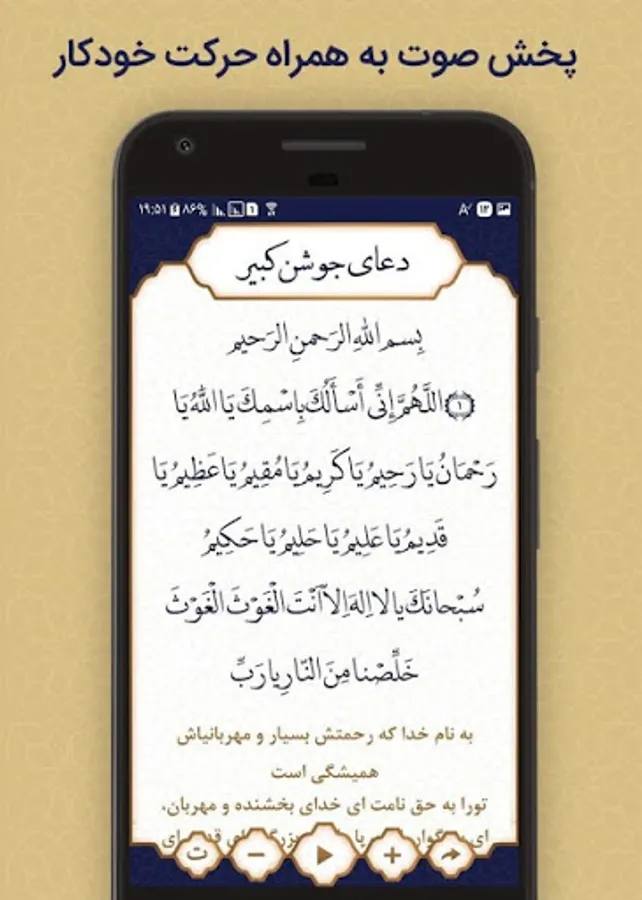 پخش صوت به همراه حرکت خودکار
۱۹:۵۱ ۸۶%
۱۲
دعای جوشن کبیر
بِسمِ اللهِ الرَحمنِ الرَحیمِ
۱ اللَّهُمَّ إِنِّي أَسْأَلُكَ بِاسْمِكَ يَا اللَّهُ يَا
رَحْمَانُ يَا رَحِيمُ يَا كَرِيمُ يَا مُقِيمُ يَا عَظِيمُ يَا
قَدِيمُ يَا عَلِيمُ يَا حَلِيمُ يَا حَكِيمُ
سُبْحانَكَ يالا اِلهَ اِلاّ اَنْتَ الْغَوْثَ الْغَوْثَ
خَلِّصْنا مِنَ النّارِ یا رَبِّ
به نام خدا که رحمتش بسیار و مهربانیاش
همیشگی است
تورا به حق نامت ای خدای بخشنده و مهربان،
ای
ت − +